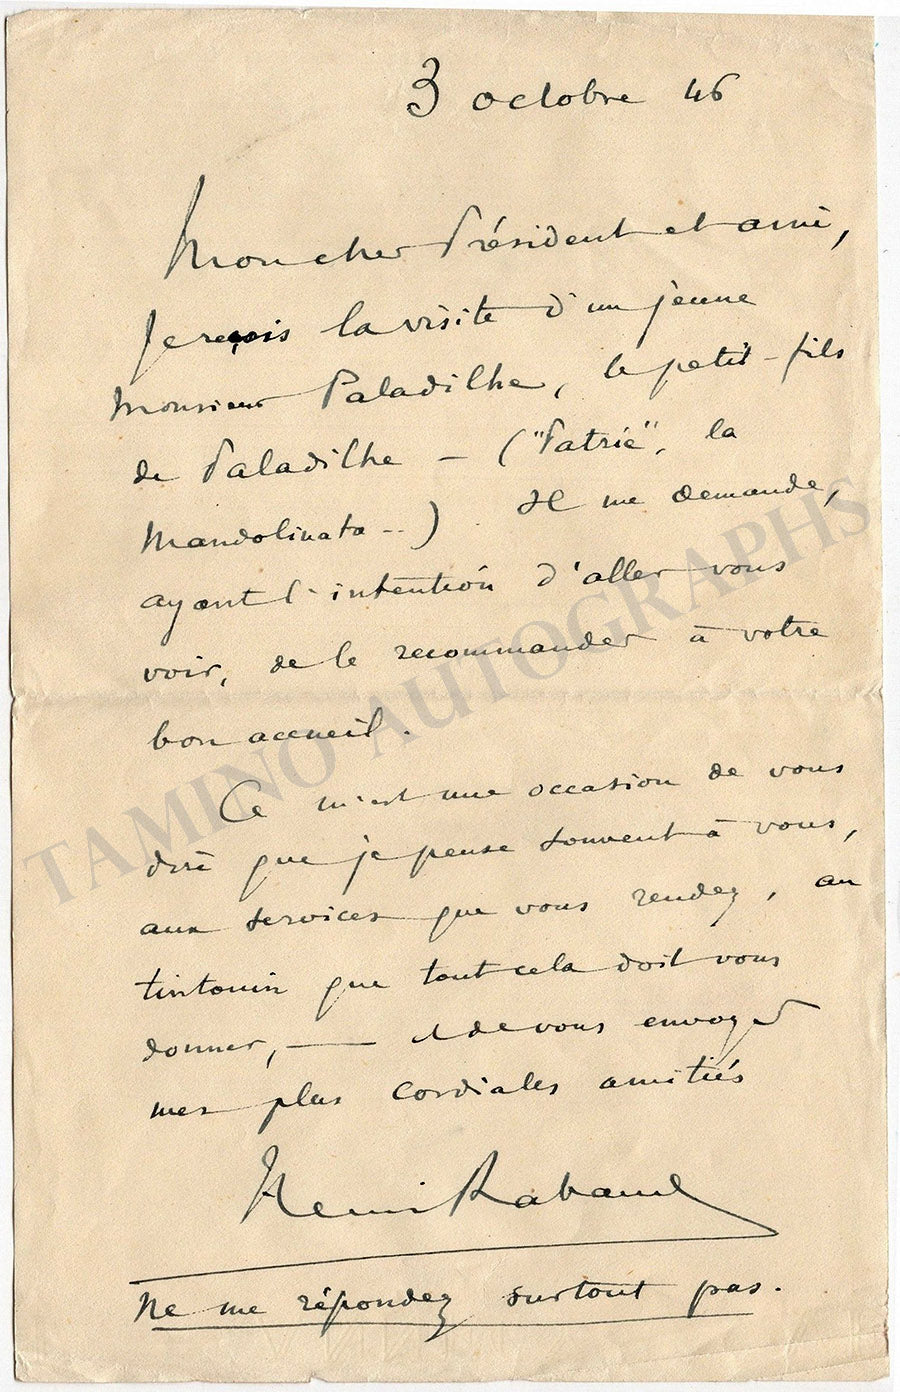 3 octobre 46
Mon cher Président et ami,
Je reçois la visite d'un jeune
Monsieur Paladilhe, le petit-fils
de Paladilhe — ("Patrie", la
Mandolinata --) . Il me demande,
ayant l'intention d'aller vous
voir, de le recommander à votre
bon accueil.
Ce m'est une occasion de vous
dire que je pense souvent à vous,
aux services que vous rendez, au
tintouin que tout cela doit vous
donner, — et de vous envoyer
mes plus cordiales amitiés
Henri Rabaud
Ne me répondez surtout pas.
TAMINO AUTOGRAPHS